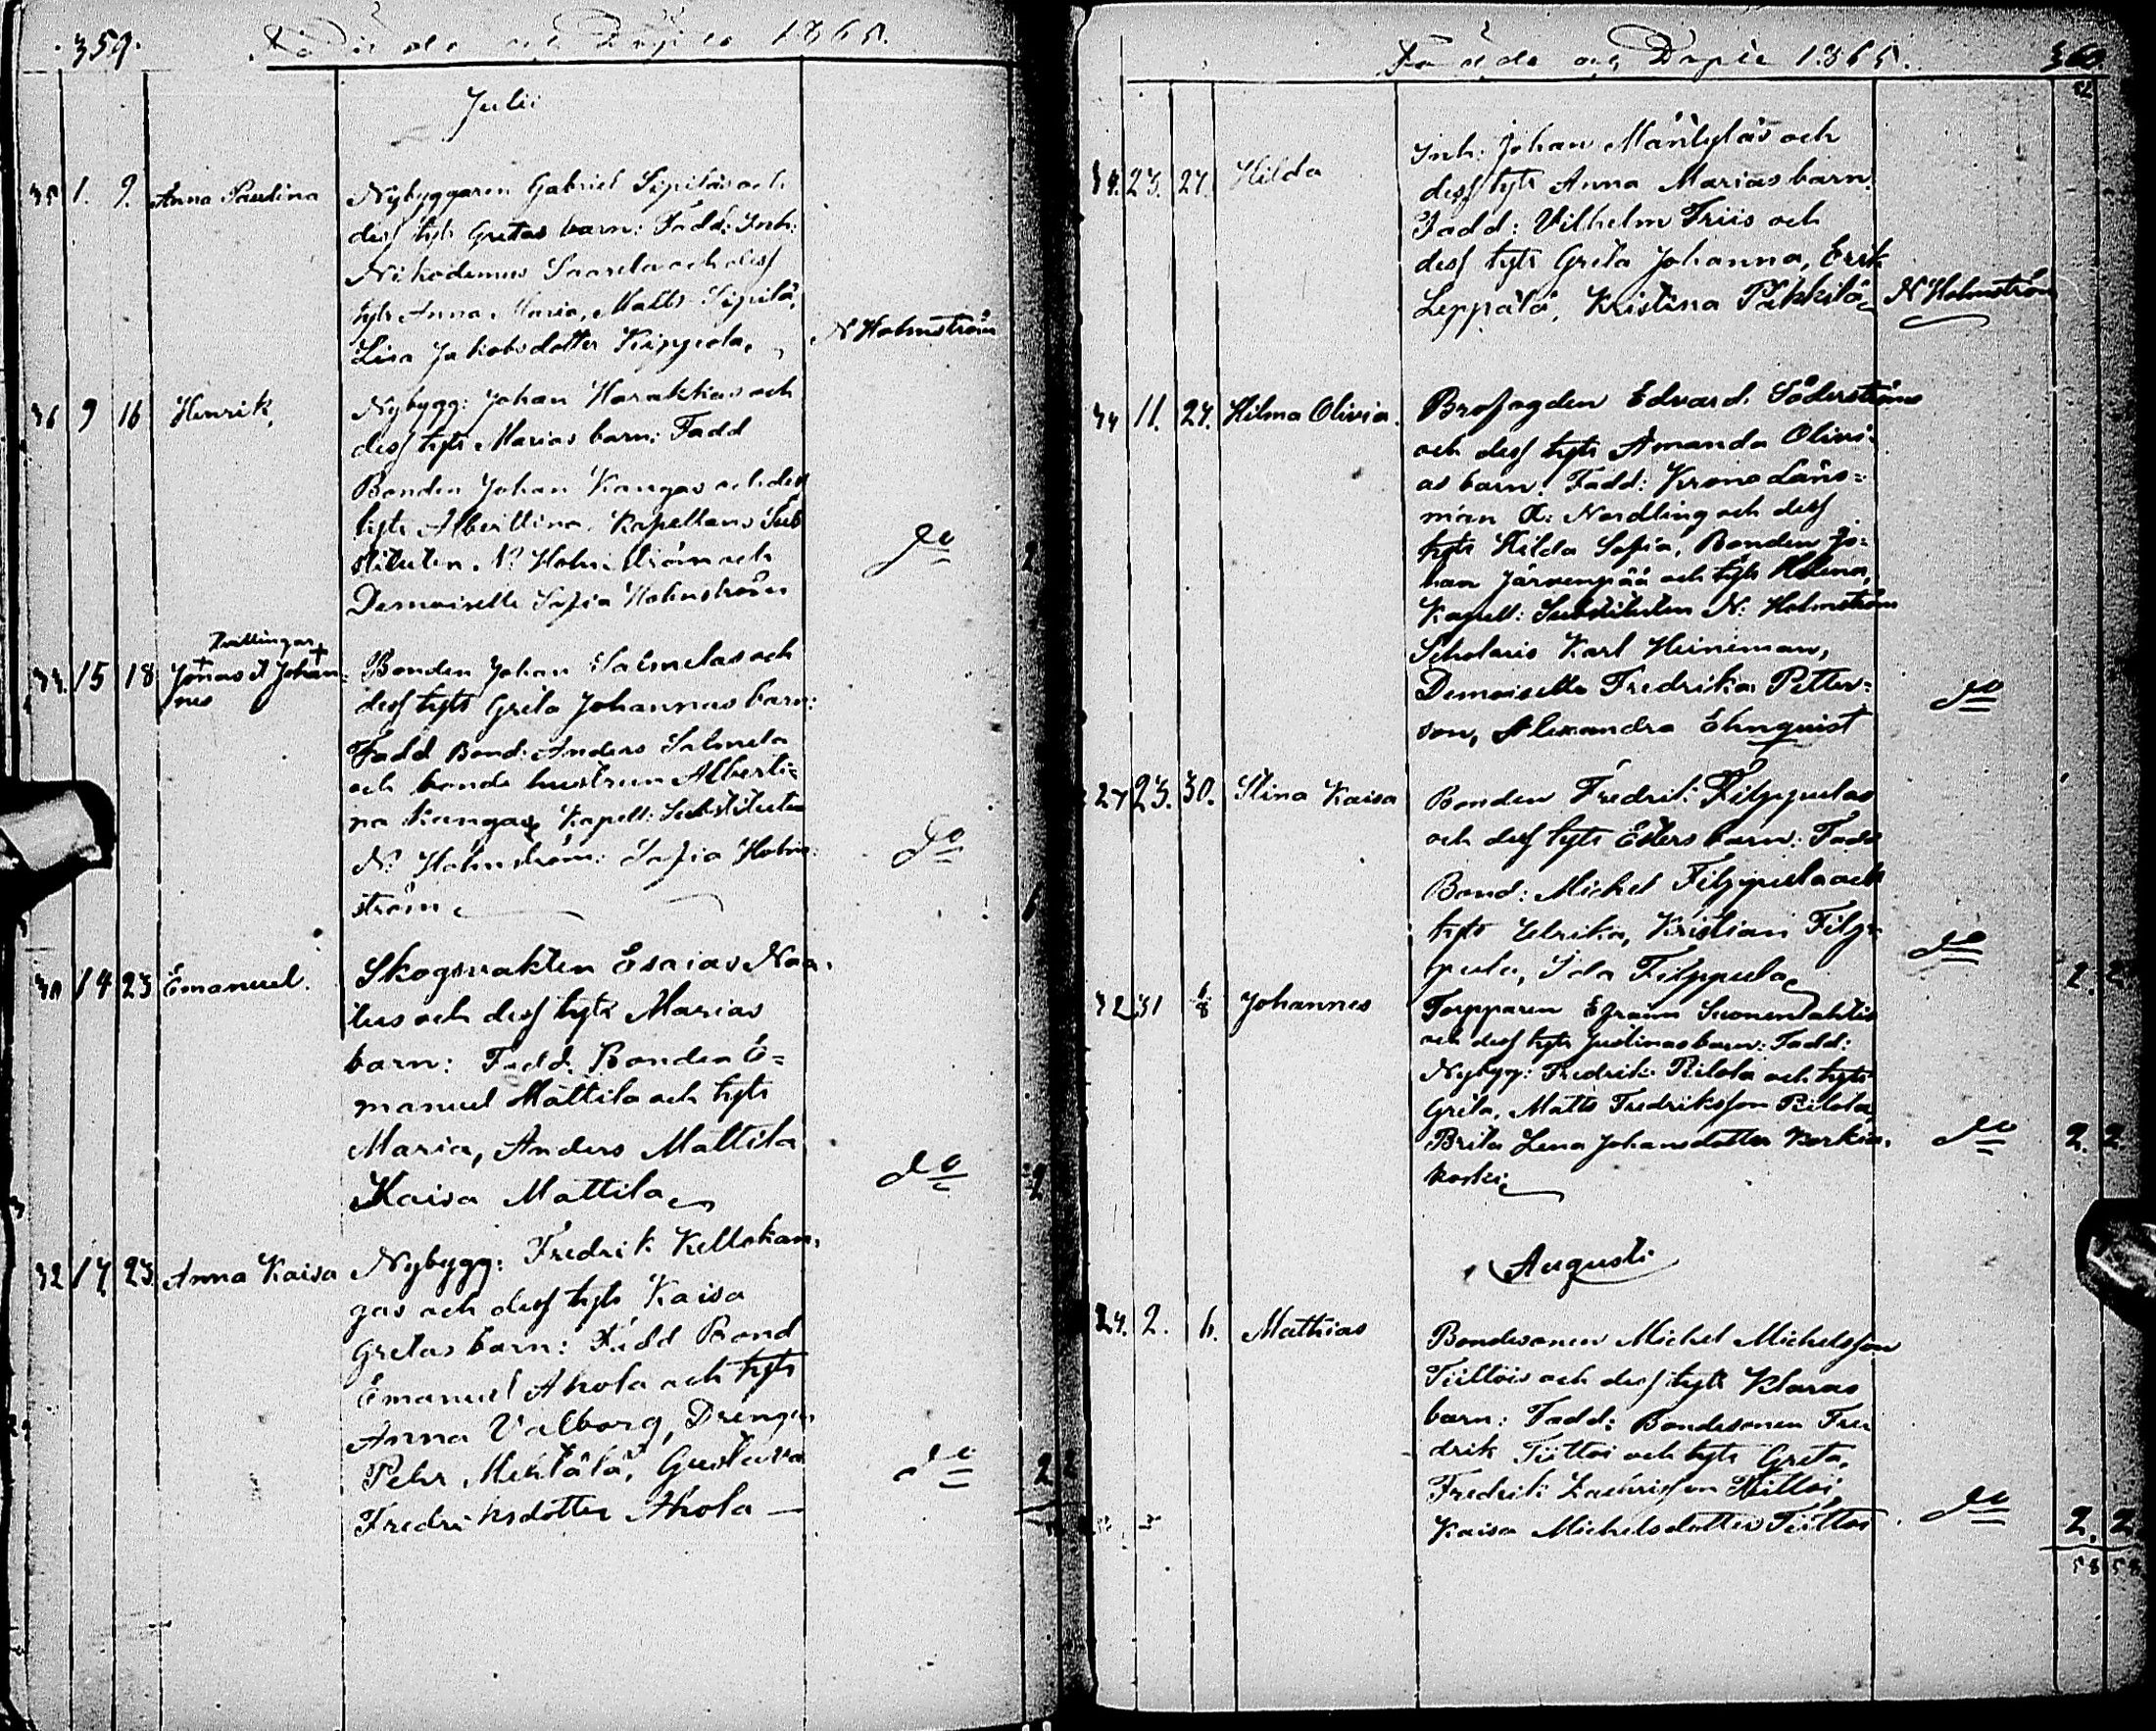 359.
Födde och Döpte 1865.
Julii
35 1. 9. Anna Paulina
Nybyggaren Gabriel Sipiläs och
dess hustr Gretas barn: Fadd: Inh:
Nikodemus Saarela och dess
hust Anna Maria, Matts Sipilä,
Lisa Jakobsdotter Kippola,
N Holmström
36 9 16 Henrik,
Nybygg: Johan Harakkas och
dess hust Marias barn: Fadd
Bonden Johan Kangas och dess
hust Albertina. Kapellans Sub
stituten N. Holmström och
Demoiselle Sofia Holmström
do 2
Tvillingar
15 18 Jonas & Johan=
nes
Bonden Johan Salmelas och
dess hust Greta Johannas barn:
Fadd Bond: Anders Salmela
och bonde hustrun Alberti=
na Kangas, Kapell: Substituten
N. Holmström: Sofia Holm
ström
do
14 23 Emanuel.
Skogsvakten Esaias Naa
tus och dess hust Marias
barn: Fadd. Bonden E=
manuel Mattila och hust
Maria, Anders Mattila
Kaisa Mattila
do 2
32 17 23 Anna Kaisa
Nybygg: Fredrik Kellokan,
gas och dess hust Kaisa
Gretas barn: Fadd Bond
Emanuel Ahola och hust
Anna Valborg, Drengen
Pehr Mehtälä, Gustava
Fredriksdotter Ahola —
do 2 2
Födde och Döpte 1865.
360
23. 27. Hilda
Inh: Johan Mäntyläs och
dess hust Anna Marias barn.
Fadd: Vilhelm Friis och
dess hust Greta Johanna, Erik
Leppälä, Kristina Päkkilä
N Holmström
11. 27. Hilma Olivia.
Brofogden Edvard Söderströms
och dess hust Amanda Olivi=
as barn. Fadd: Krono Läns=
man A: Nordling och dess
hust Hilda Sofia, Bonden Jo=
han Järvenpää och hust Helena,
Kapell: Substituten N: Holmström
Scholaris Karl Heineman,
Demoiselle Fredrika Petter=
son, Alexandra Ehnquist
do
27 23. 30. Stina Kaisa
Bonden Fredrik Filppulas
och dess hust Esters barn: Fadd
Bond: Michel Filppula och
hust Ulrika, Kristian Filp=
pula, Ida Filppula
do 2. 2
32 31 6/8 Johannes
Torpparen Efraim Suomenlahtis
och dess hust Justinas barn: Fadd:
Nybygg: Fredrik Pilola och hust
Greta, Matts Fredriksson Pilola,
Brita Lena Johansdotter Korkia,
koski
do 2. 2.
Augusti
24. 2. 6. Mathias
Bondesonen Michel Michelsson
Tiittois och dess hust Klaras
barn: Fadd: Bondesonen Fre
drik Tiittoi och hust Greta,
Fredrik Zachrisson Tiittoi,
Kaisa Michelsdotter Tiittoi.
do 2. 2
58 58